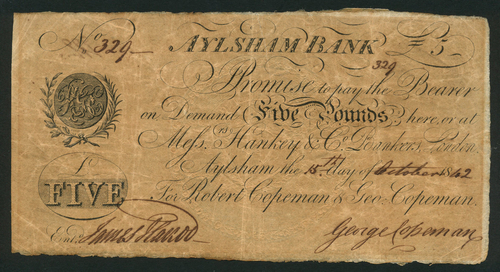 No. 329 AYLSHAM BANK £5
329
I Promise to pay the Bearer
on Demand Five Pounds, here, or at
Messrs. Hankey & Co. Bankers, London.
Aylsham the 15th day of October 1842
£
FIVE
For Robert Copeman & Geo: Copeman.
Entd. George Copeman